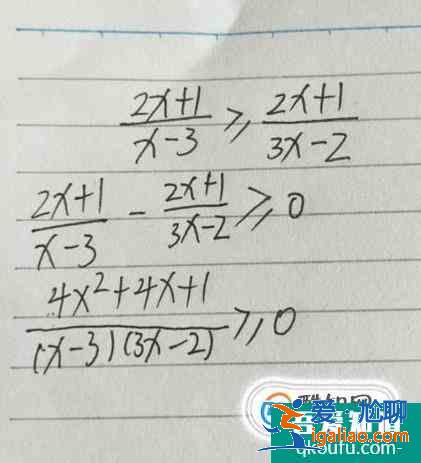 (2x+1)/(x-3) ≥ (2x+1)/(3x-2)
(2x+1)/(x-3) - (2x+1)/(3x-2) ≥ 0
(4x²+4x+1)/((x-3)(3x-2)) ≥ 0
爱·尬聊
igaliao.com
qkoufu.com